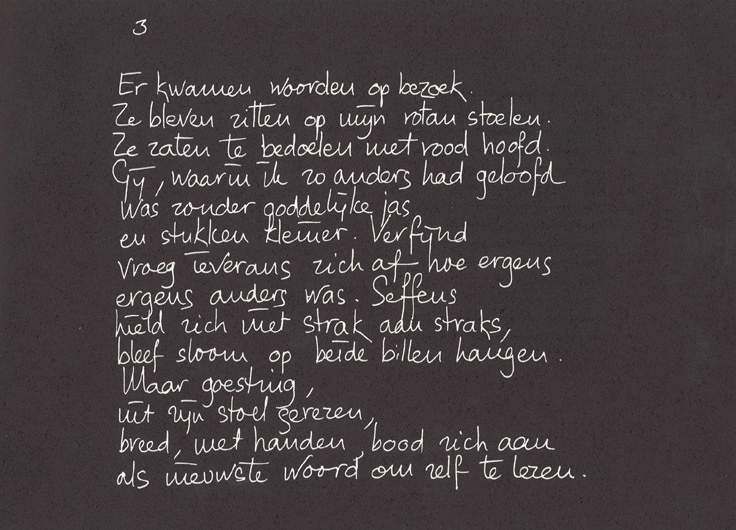 3
Er kwamen woorden op bezoek.
Ze bleven zitten op mijn rotan stoelen.
Ze zaten te bedoelen met rood hoofd.
Gij, waarin ik zo anders had geloofd
Was zonder goddelijke jas
en stukken kleiner. Verfijnd
vroeg ieverans zich af hoe ergens
ergens anders was. Seffens
hield zich niet strak aan straks,
bleef sloom op beide billen hangen.
Maar goesting,
uit zijn stoel gerezen,
breed, met handen, bood zich aan
als nieuwste woord om zelf te lezen.